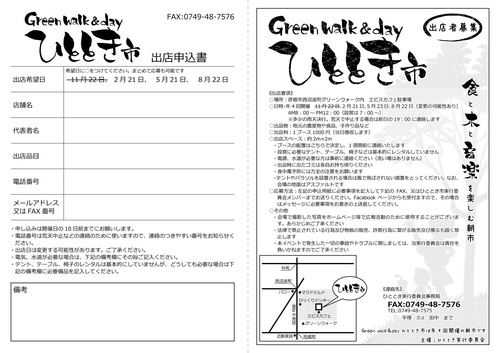 Green walk & day
ひととき市
FAX:0749-48-7576
出店申込書
出店希望日
希望日に○をつけてください。まとめて応募も可能です
11月22日、2月21日、 5月21日、 8月22日
店舗名
代表者名
出店品目
電話番号
メールアドレス
又は FAX 番号
・申し込みは開催日の 10 日前までにお願いします。
・電話番号は荒天中止などの連絡のために使いますので、連絡のつきやすい番号をお知らせください。
・出店日は変更する可能性があります。ご了承ください。
・電気、水道が必要な場合は、下記の備考欄にその旨ご記入ください。
・テント、テーブル、椅子のレンタルは基本的にしていませんが、どうしても必要な場合は下記の備考欄に必要備品を記入してください。
備考
Green walk & day
ひととき市
出店者募集
食と木と音楽を楽しむ朝市
【出店要項】
○場所：彦根市西沼波町グリーンウォーク内 エビスカフェ駐車場
○日時：年4回開催 11月22日、2月21日、5月23日、8月22日（変更の可能性あり）
AM8：00 ～ PM12：00（設営は7：00 ～）
※多少の雨天決行。荒天で中止する場合は前日の 19：00 に連絡します
○出品物：地元の農産物や食品、手作り品など
○出店料：1ブース 1000円（当日徴収します）
○出店スペース：約2m×2m
・ブースの配置はこちらで決定し、1週間前に連絡いたします
・設営に必要なテント、テーブル、椅子などは基本的にレンタルしていません
・電源、水道が必要な方は事前に連絡ください（洗い場はありません）
・出店時に出たゴミは各自お持ち帰りください
・食中毒予防には万全の注意をお願います
・テントやパラソルを設営される場合は風で飛ばされない措置をとってください。なお、会場の地面はアスファルトです
○応募方法：左記の申込用紙に必要事項を記入して下記の FAX、又はひととき実行委員会メンバーまでお送りください。Facebook ページからも受付ますので、その場合はメッセージに必要事項をお書きの上送信してください。
○その他
・会場で撮影した写真をホームページ等で広報活動のために使用することがございます。あらかじめご了承ください
・法律で禁止されている行為及び物販の販売、詐欺行為に繋がる販売及び展示も固く禁止します
・本イベントで発生した一切の事故やトラブルに関しましては、当実行委員会は責任を負いかねますのでご了承ください
マクドナルド
びっくりドンキー
エビスカフェ
グリーンウォーク
ひととき市
【連絡先】
ひととき実行委員会事務局
FAX:0749-48-7576
TEL:0749-48-7575
平塚 又は 田中 まで
Green walk & day ひととき市は年4回開催の朝市です
主催：ひととき実行委員会